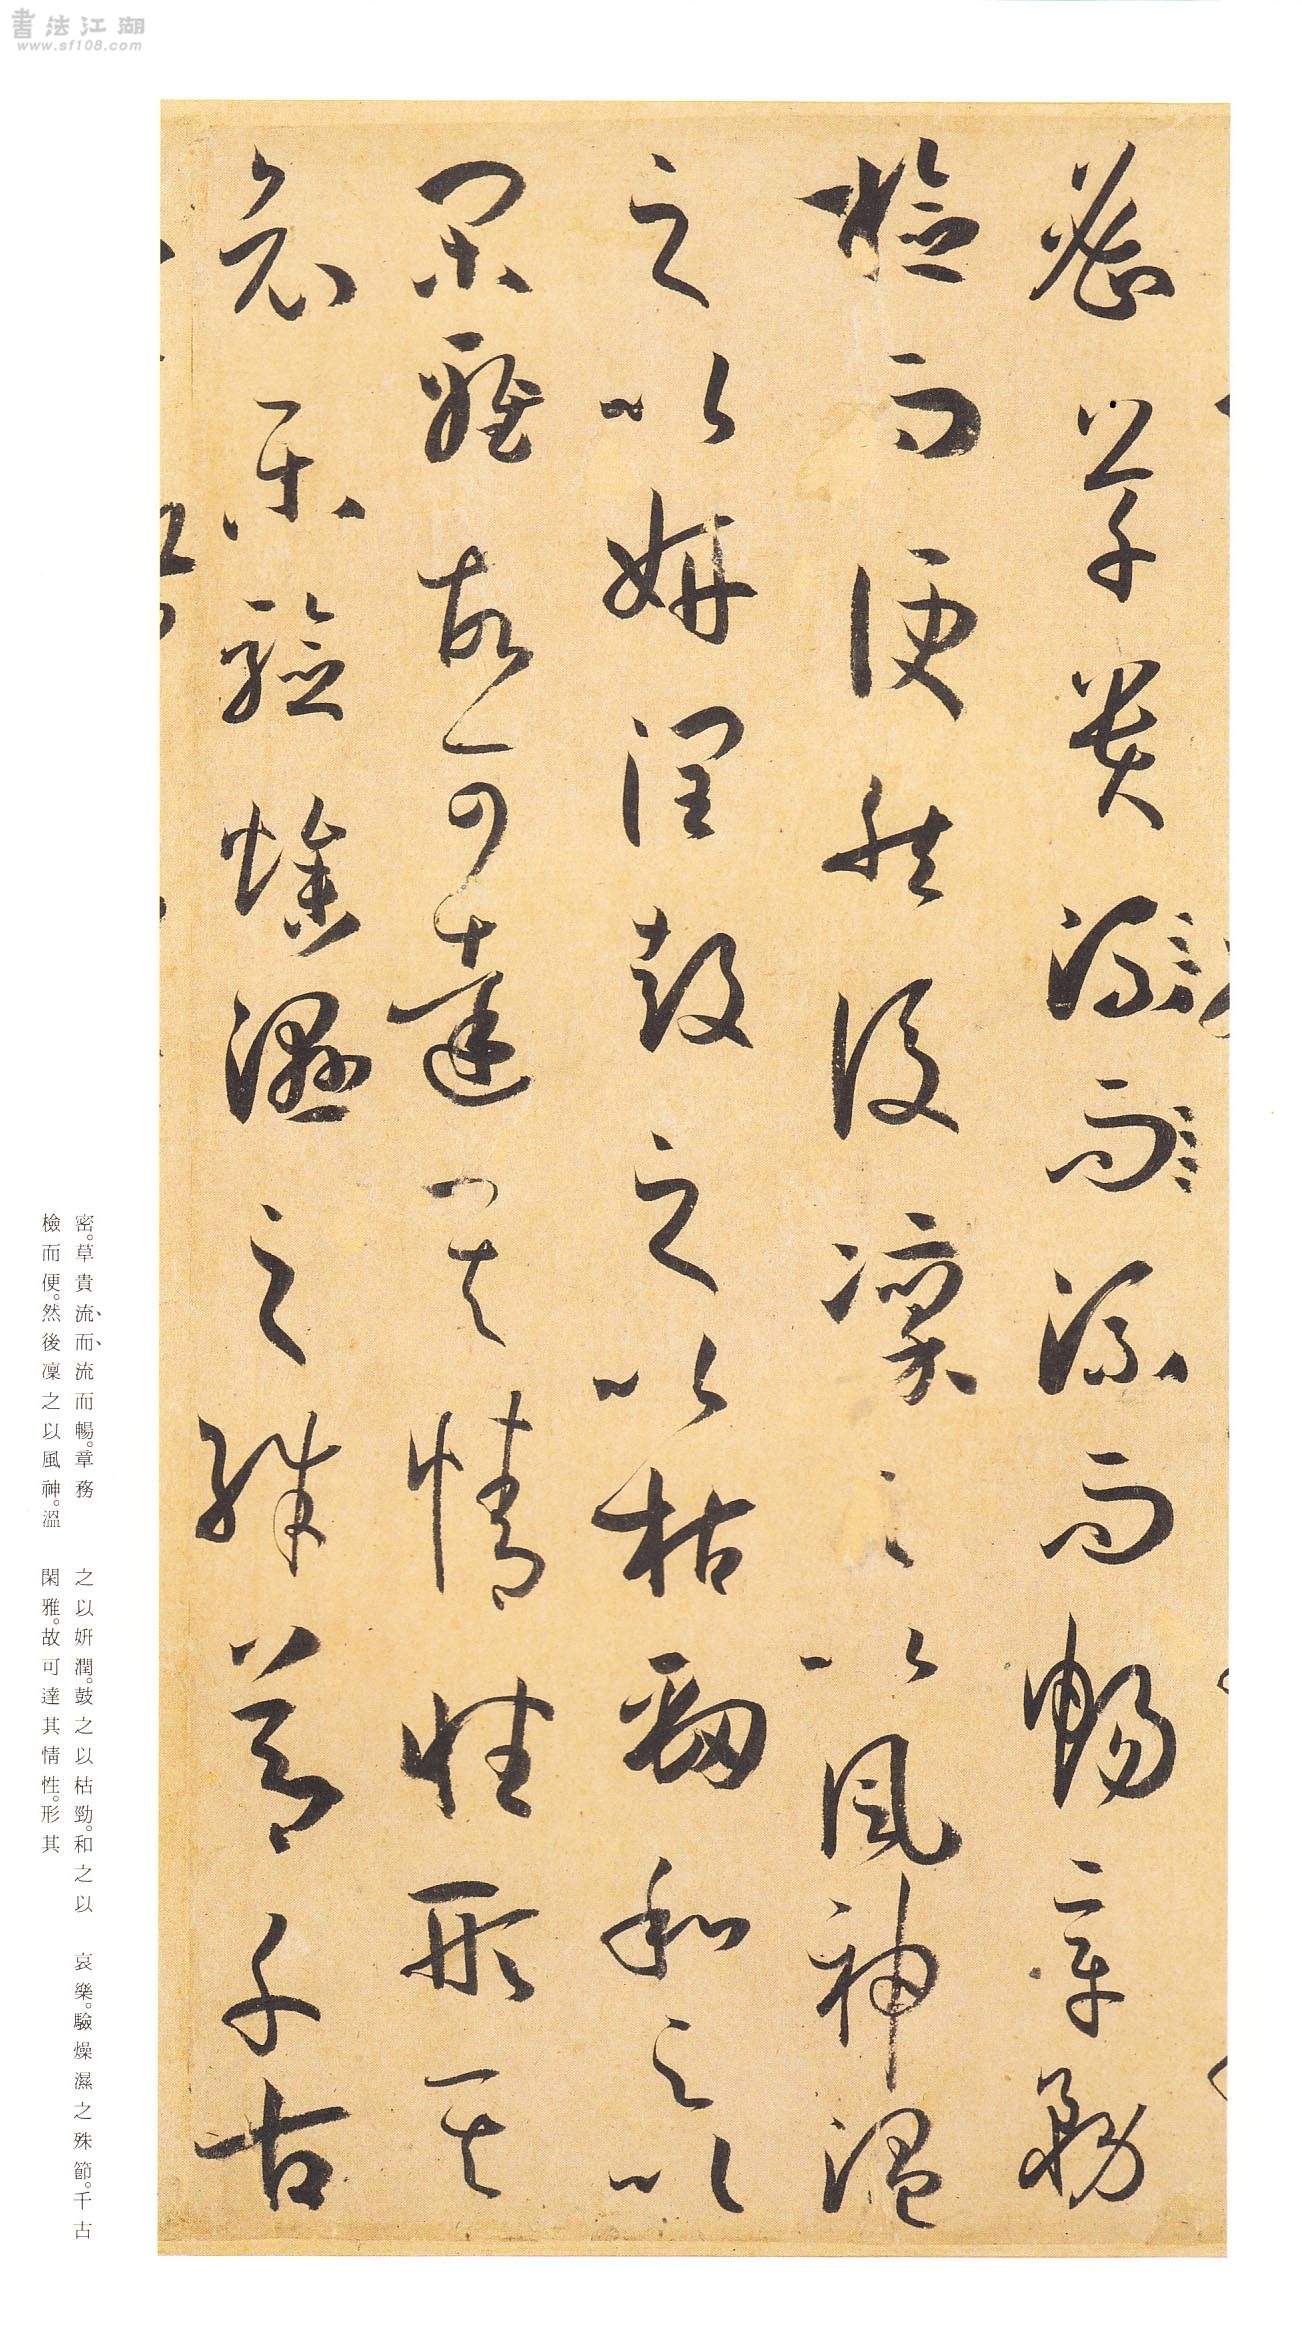 書法江湖
www.sf108.com
密草貴流而流而暢章務
檢而便然後凜之以風神溫
之以妍潤鼓之以枯勁和之以
閑雅故可達其情性形其
哀樂驗燥濕之殊節千古
密。草貴流、而、流而暢。章務
檢而便。然後凜之以風神。溫
之以妍潤。鼓之以枯勁。和之以
閑雅。故可達其情性。形其
哀樂。驗燥濕之殊節。千古